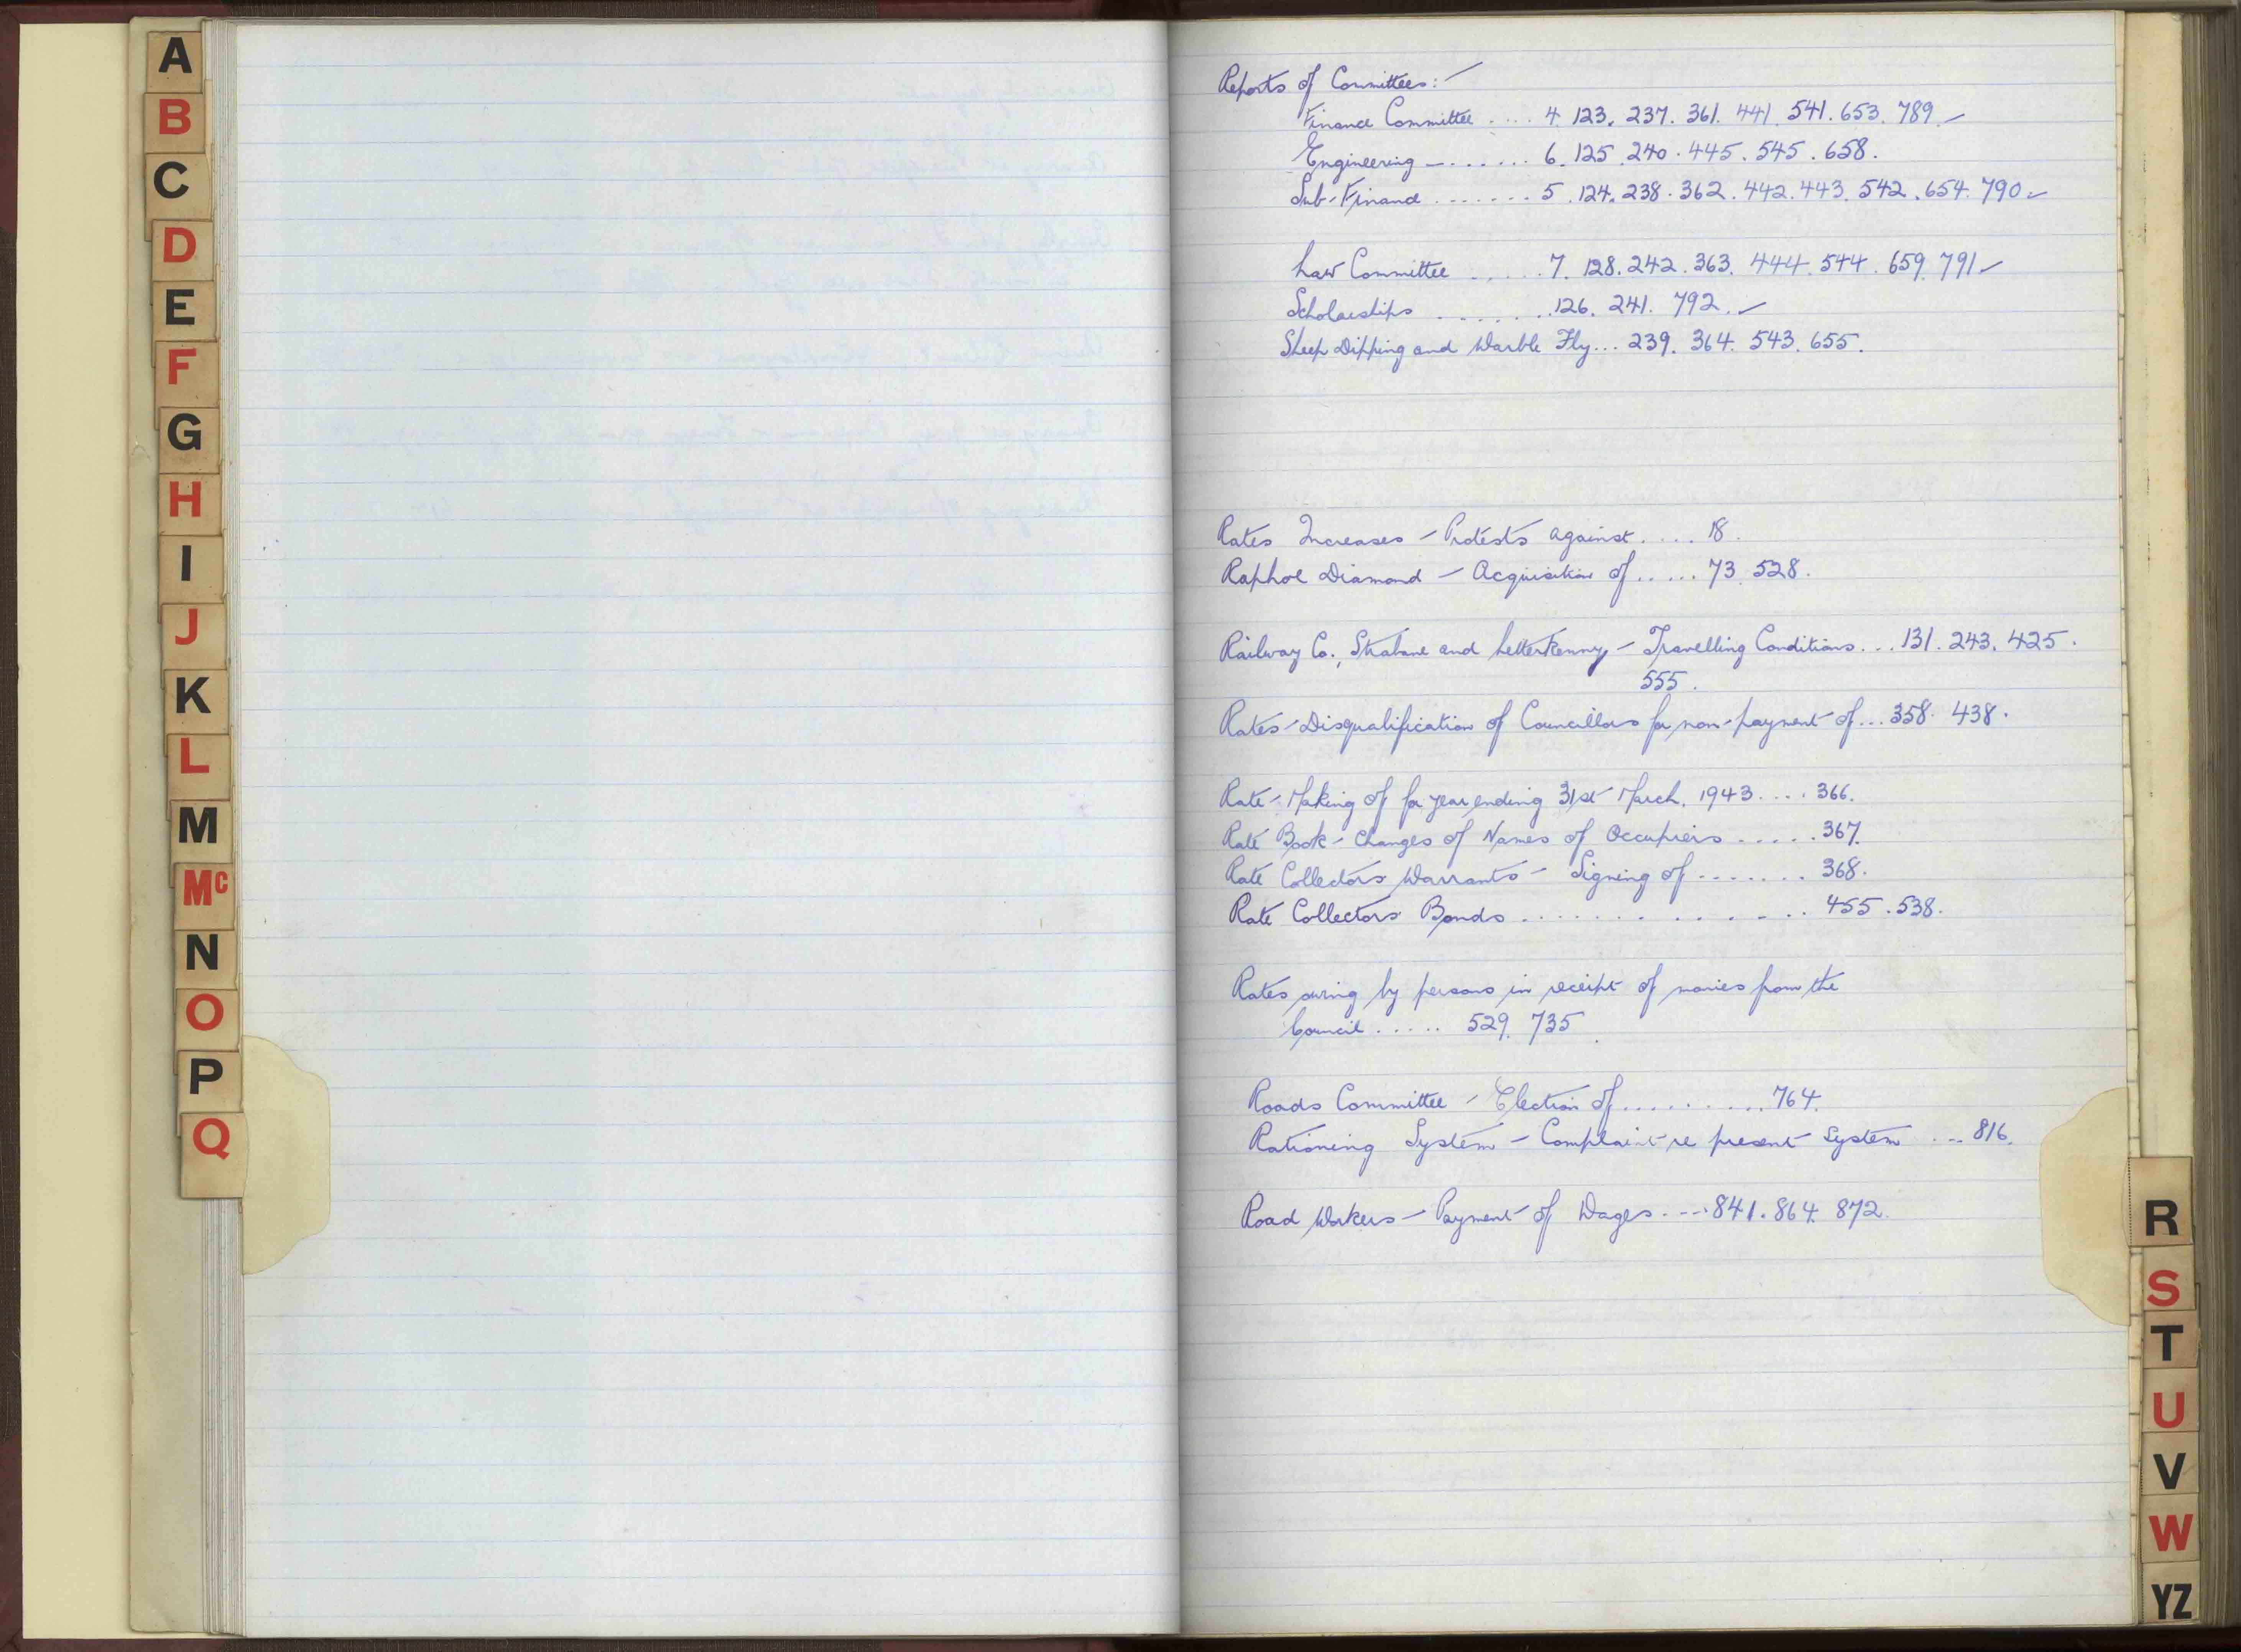 A
B
C
D
E
F
G
H
I
J
K
L
M
Mc
N
O
P
Q
Reports of Committees:-
Finance Committee .... 4. 123. 237. 361. 441. 541. 653. 789. ✓
Engineering - ...... 6. 125. 240. 445. 545. 658.
Sub-Finance ....... 5. 124. 238. 362. 442. 443. 542. 654. 790. ✓
Law Committee ..... 7. 128. 242. 363. 444. 544. 659. 791 ✓
Scholarships ........ 126. 241. 792. ✓
Sheep Dipping and Warble Fly... 239. 364. 543. 655.
Rates Increases - Protests against..... 18.
Raphoe Diamond - Acquisition of...... 73. 528.
Railway Co., Strabane and Letterkenny - Travelling Conditions... 131. 243. 425.
555.
Rates - Disqualification of Councillors for non-payment of... 358. 438.
Rate - Making of for year ending 31st March, 1943.... 366.
Rate Book - Changes of Names of Occupiers ..... 367.
Rate Collectors Warrants - Signing of ....... 368.
Rate Collectors Bonds .............. 455. 538.
Rates owing by persons in receipt of monies from the
Council ..... 529. 735.
Roads Committee - Election of.......... 764.
Rationing System - Complaint re present system ... 816.
Road Workers - Payment of Wages .... 841. 864. 872.
R
S
T
U
V
W
YZ